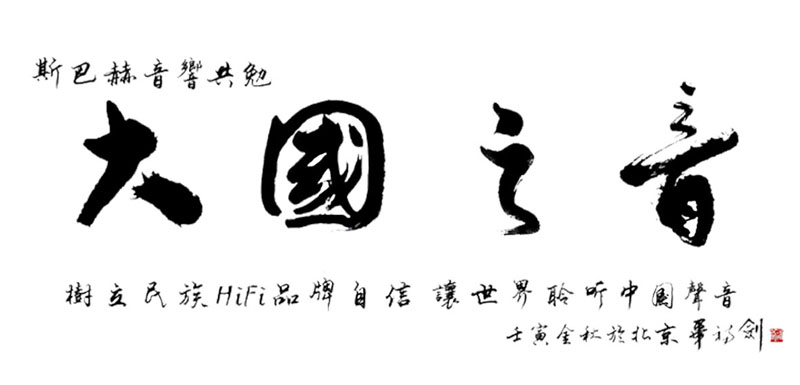 斯巴赫音響共勉
大國之音
樹立民族HiFi品牌自信 讓世界聆听中國聲音
壬寅金秋於北京 畢福劍